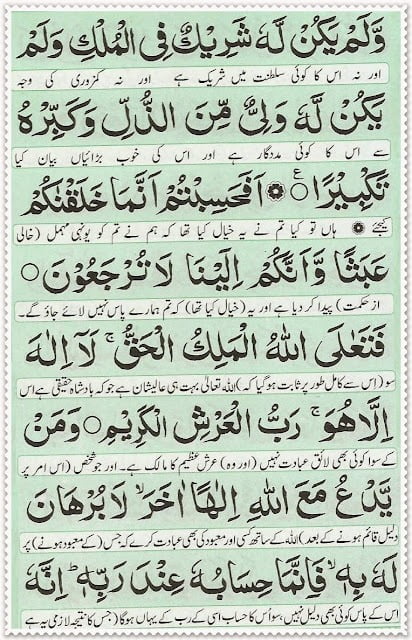 وَّلَمْ يَكُنْ لَّهٗ شَرِيْكٌ فِي الْمُلْكِ وَلَمْ
اور نہ اس کا کوئی سلطنت میں شریک ہے اور نہ کمزوری کی وجہ
يَكُنْ لَّهٗ وَلِيٌّ مِّنَ الذُّلِّ وَكَبِّرْهُ
سے اس کا کوئی مددگار ہے اور اس کی خوب بڑائیاں بیان کیا
تَكْبِيْرًا اَفَحَسِبْتُمْ اَنَّمَا خَلَقْنٰكُمْ
کیجئے ہاں تو کیا تم نے یہ خیال کیا تھا کہ ہم نے تم کو یونہی مہمل (خالی
عَبَثًا وَّاَنَّكُمْ اِلَيْنَا لَا تُرْجَعُوْنَ
از حکمت) پیدا کر دیا ہے اور یہ (خیال کیا تھا) کہ تم ہمارے پاس نہیں لائے جاؤ گے۔
فَتَعٰلَى اللّٰهُ الْمَلِكُ الْحَقُّ ۚ لَآ اِلٰهَ
سو (اس سے کامل طور پر ثابت ہو گیا کہ) اللہ تعالیٰ بہت ہی عالیشان ہے جو کہ بادشاہ حقیقی ہے اس
اِلَّا هُوَ ۚ رَبُّ الْعَرْشِ الْكَرِيْمِ وَمَنْ
کے سوا کوئی بھی لائق عبادت نہیں (اور وہ) عرش عظیم کا مالک ہے۔ اور جو شخص (اس امر پر
يَّدْعُ مَعَ اللّٰهِ اِلٰهًا اٰخَرَ ۙ لَا بُرْهَانَ
دلیل قائم ہونے کے بعد) اللہ کے ساتھ کسی اور معبود کی بھی عبادت کرے کہ جس (کے معبود ہونے) پر
لَهٗ بِهٖ ۙ فَاِنَّمَا حِسَابُهٗ عِنْدَ رَبِّهٖ ؕ اِنَّهٗ
اس کے پاس کوئی بھی دلیل نہیں، سو اُس کا حساب اسی کے رب کے یہاں ہوگا (جس کا نتیجہ لازمی یہ ہے